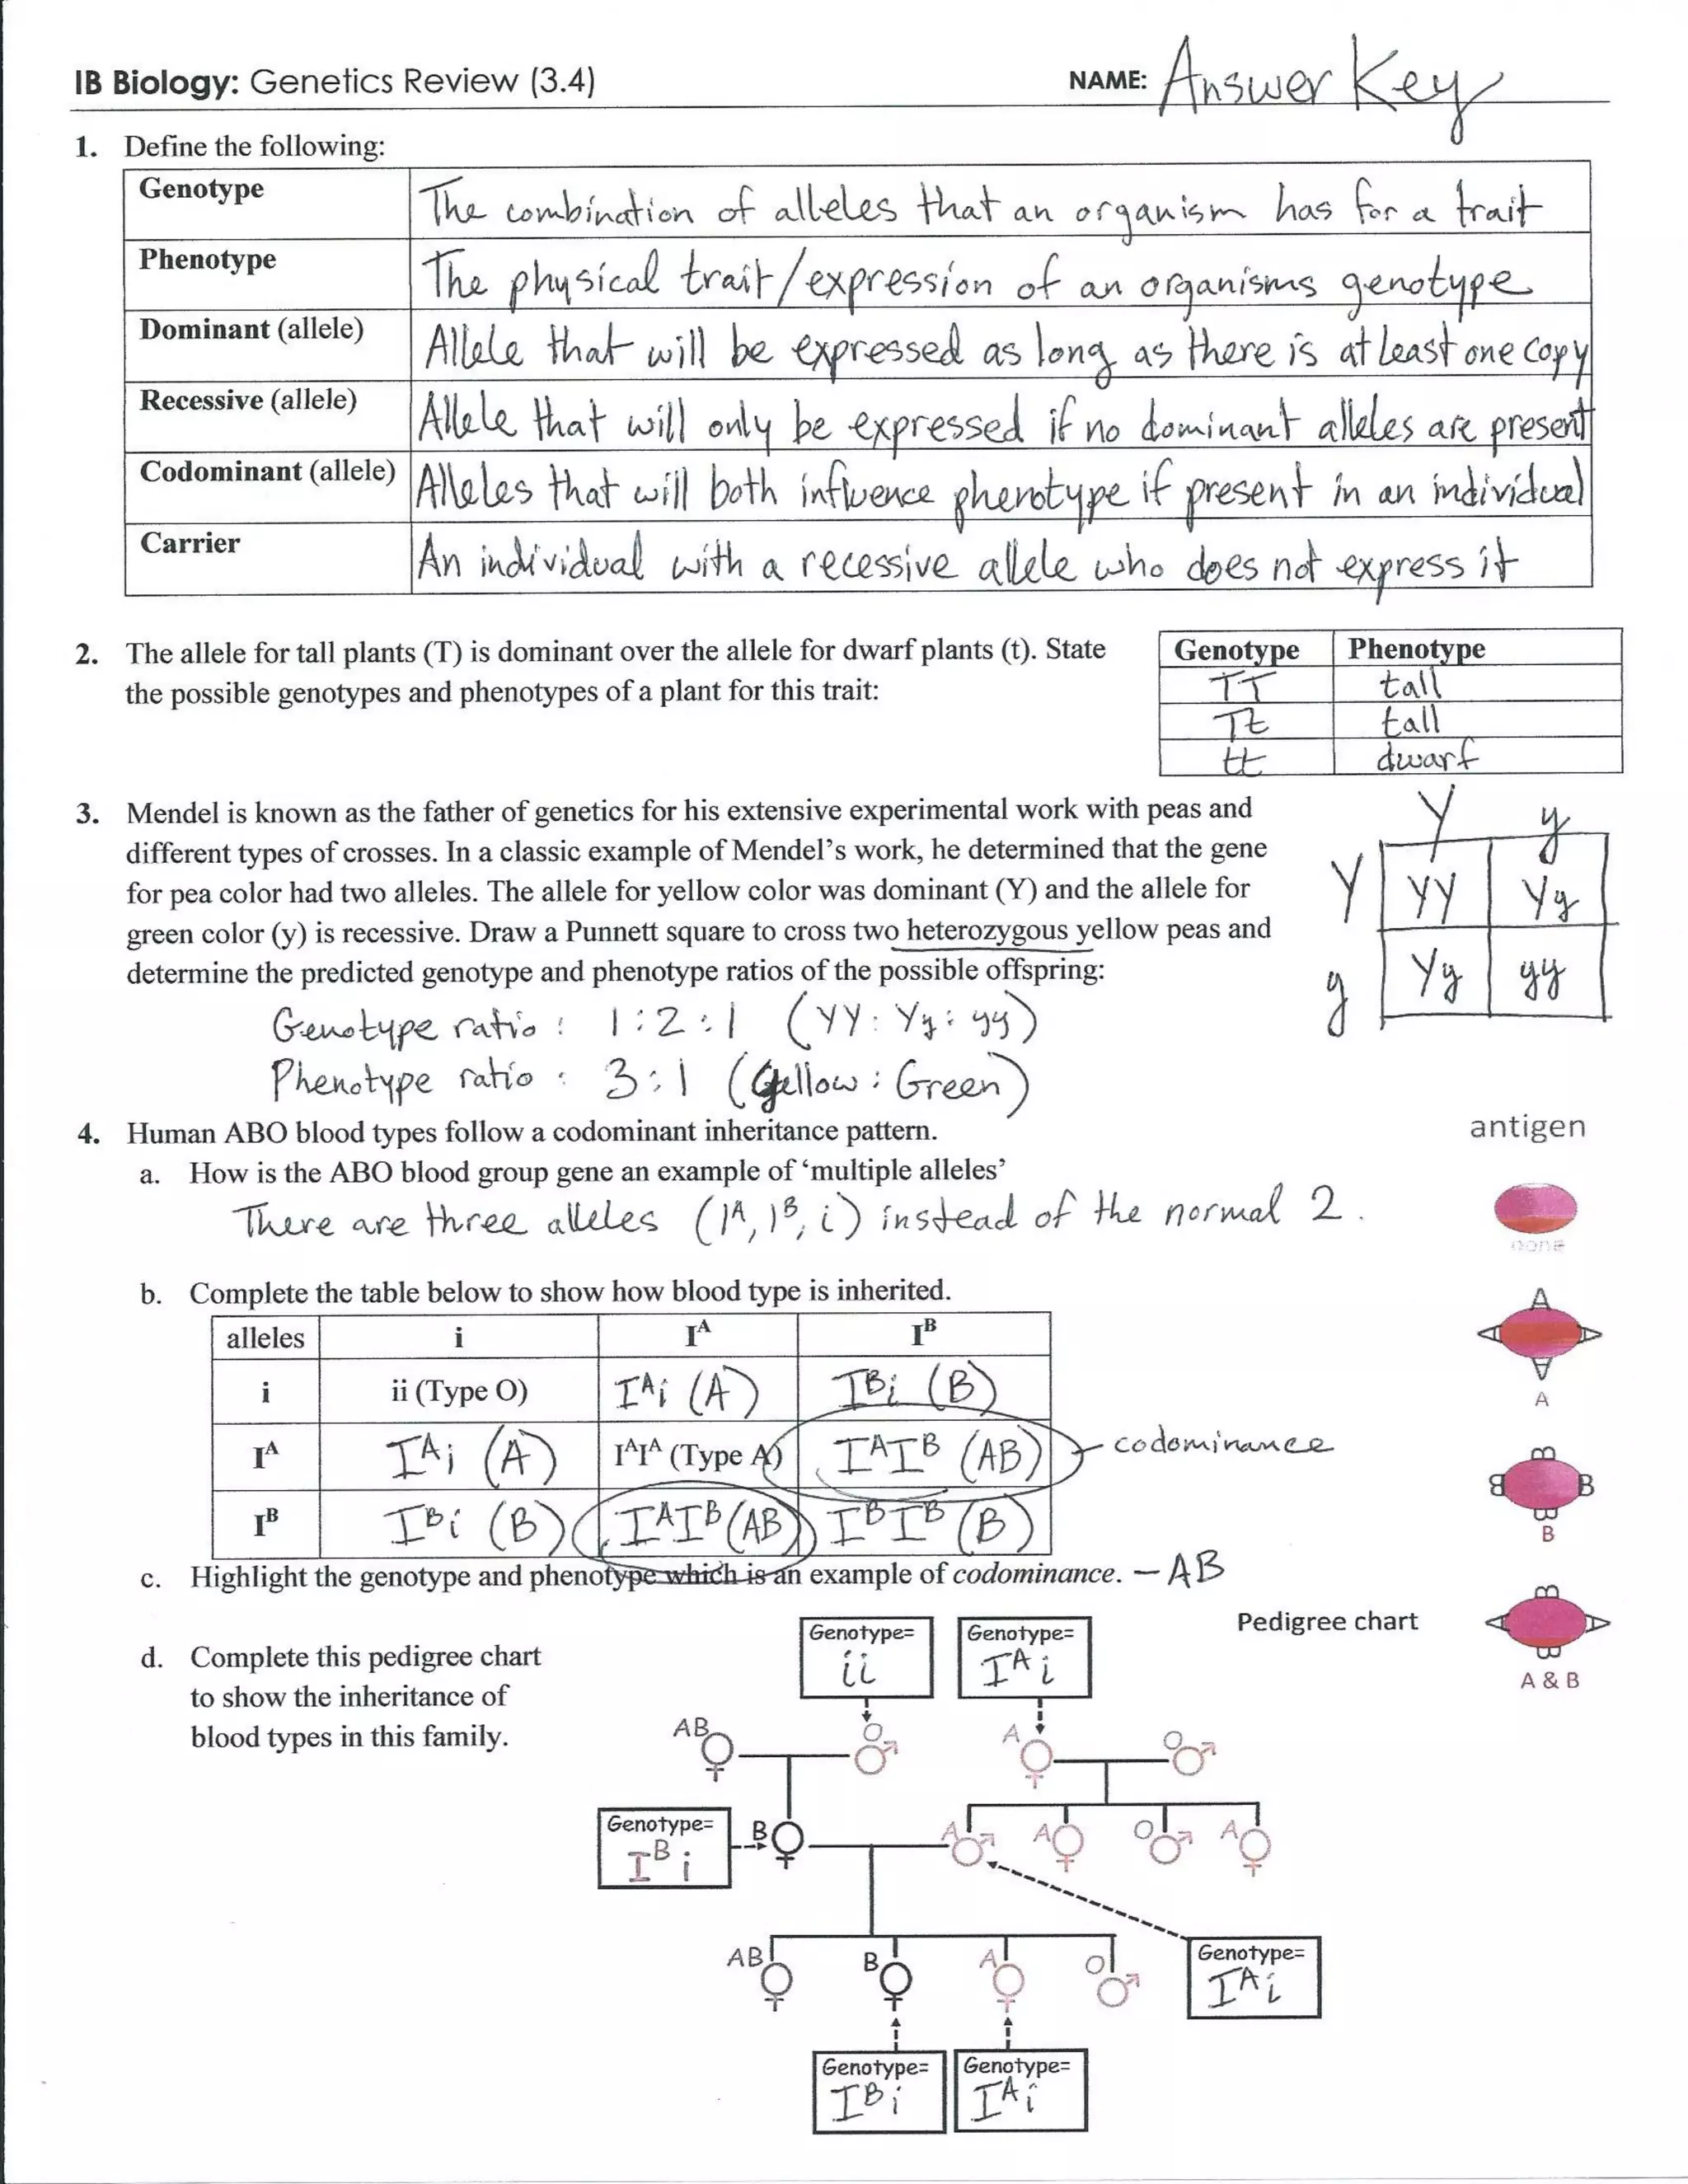 IB Biology: Genetics Review (3.4) NAME: Answer Key
1. Define the following:
Genotype The combination of alleles that an organism has for a trait
Phenotype The physical trait/expression of an organisms genotype
Dominant (allele) Allele that will be expressed as long as there is at least one copy
Recessive (allele) Allele that will only be expressed if no dominant alleles are present
Codominant (allele) Alleles that will both influence phenotype if present in an individual
Carrier An individual with a recessive allele who does not express it
2. The allele for tall plants (T) is dominant over the allele for dwarf plants (t). State
the possible genotypes and phenotypes of a plant for this trait:
Genotype Phenotype
TT tall
Tt tall
tt dwarf
3. Mendel is known as the father of genetics for his extensive experimental work with peas and
different types of crosses. In a classic example of Mendel's work, he determined that the gene
for pea color had two alleles. The allele for yellow color was dominant (Y) and the allele for
green color (y) is recessive. Draw a Punnett square to cross two heterozygous yellow peas and
determine the predicted genotype and phenotype ratios of the possible offspring:
Y y
Y YY Yy
y Yy yy
Genotype ratio : 1:2:1 (YY: Yy: yy)
Phenotype ratio : 3:1 (Yellow : Green)
4. Human ABO blood types follow a codominant inheritance pattern.
a. How is the ABO blood group gene an example of 'multiple alleles'
There are three alleles (Iᴬ, Iᴮ, i) instead of the normal 2.
antigen
none
A
A
A
B
B B
B
B
B
B
A & B
b. Complete the table below to show how blood type is inherited.
alleles i Iᴬ Iᴮ
i ii (Type O) Iᴬi (A) Iᴮi (B)
Iᴬ Iᴬi (A) IᴬIᴬ (Type A) IᴬIᴮ (AB) codominance
Iᴮ Iᴮi (B) IᴬIᴮ (AB) IᴮIᴮ (B)
c. Highlight the genotype and phenotype which is an example of codominance. – AB
d. Complete this pedigree chart
to show the inheritance of
blood types in this family.
Pedigree chart
Genotype= Genotype=
ii Iᴬi
AB O A O
Genotype=
Iᴮi
B A A O A
AB B A O
Genotype=
Iᴬi
Genotype= Genotype=
Iᴮi Iᴬi